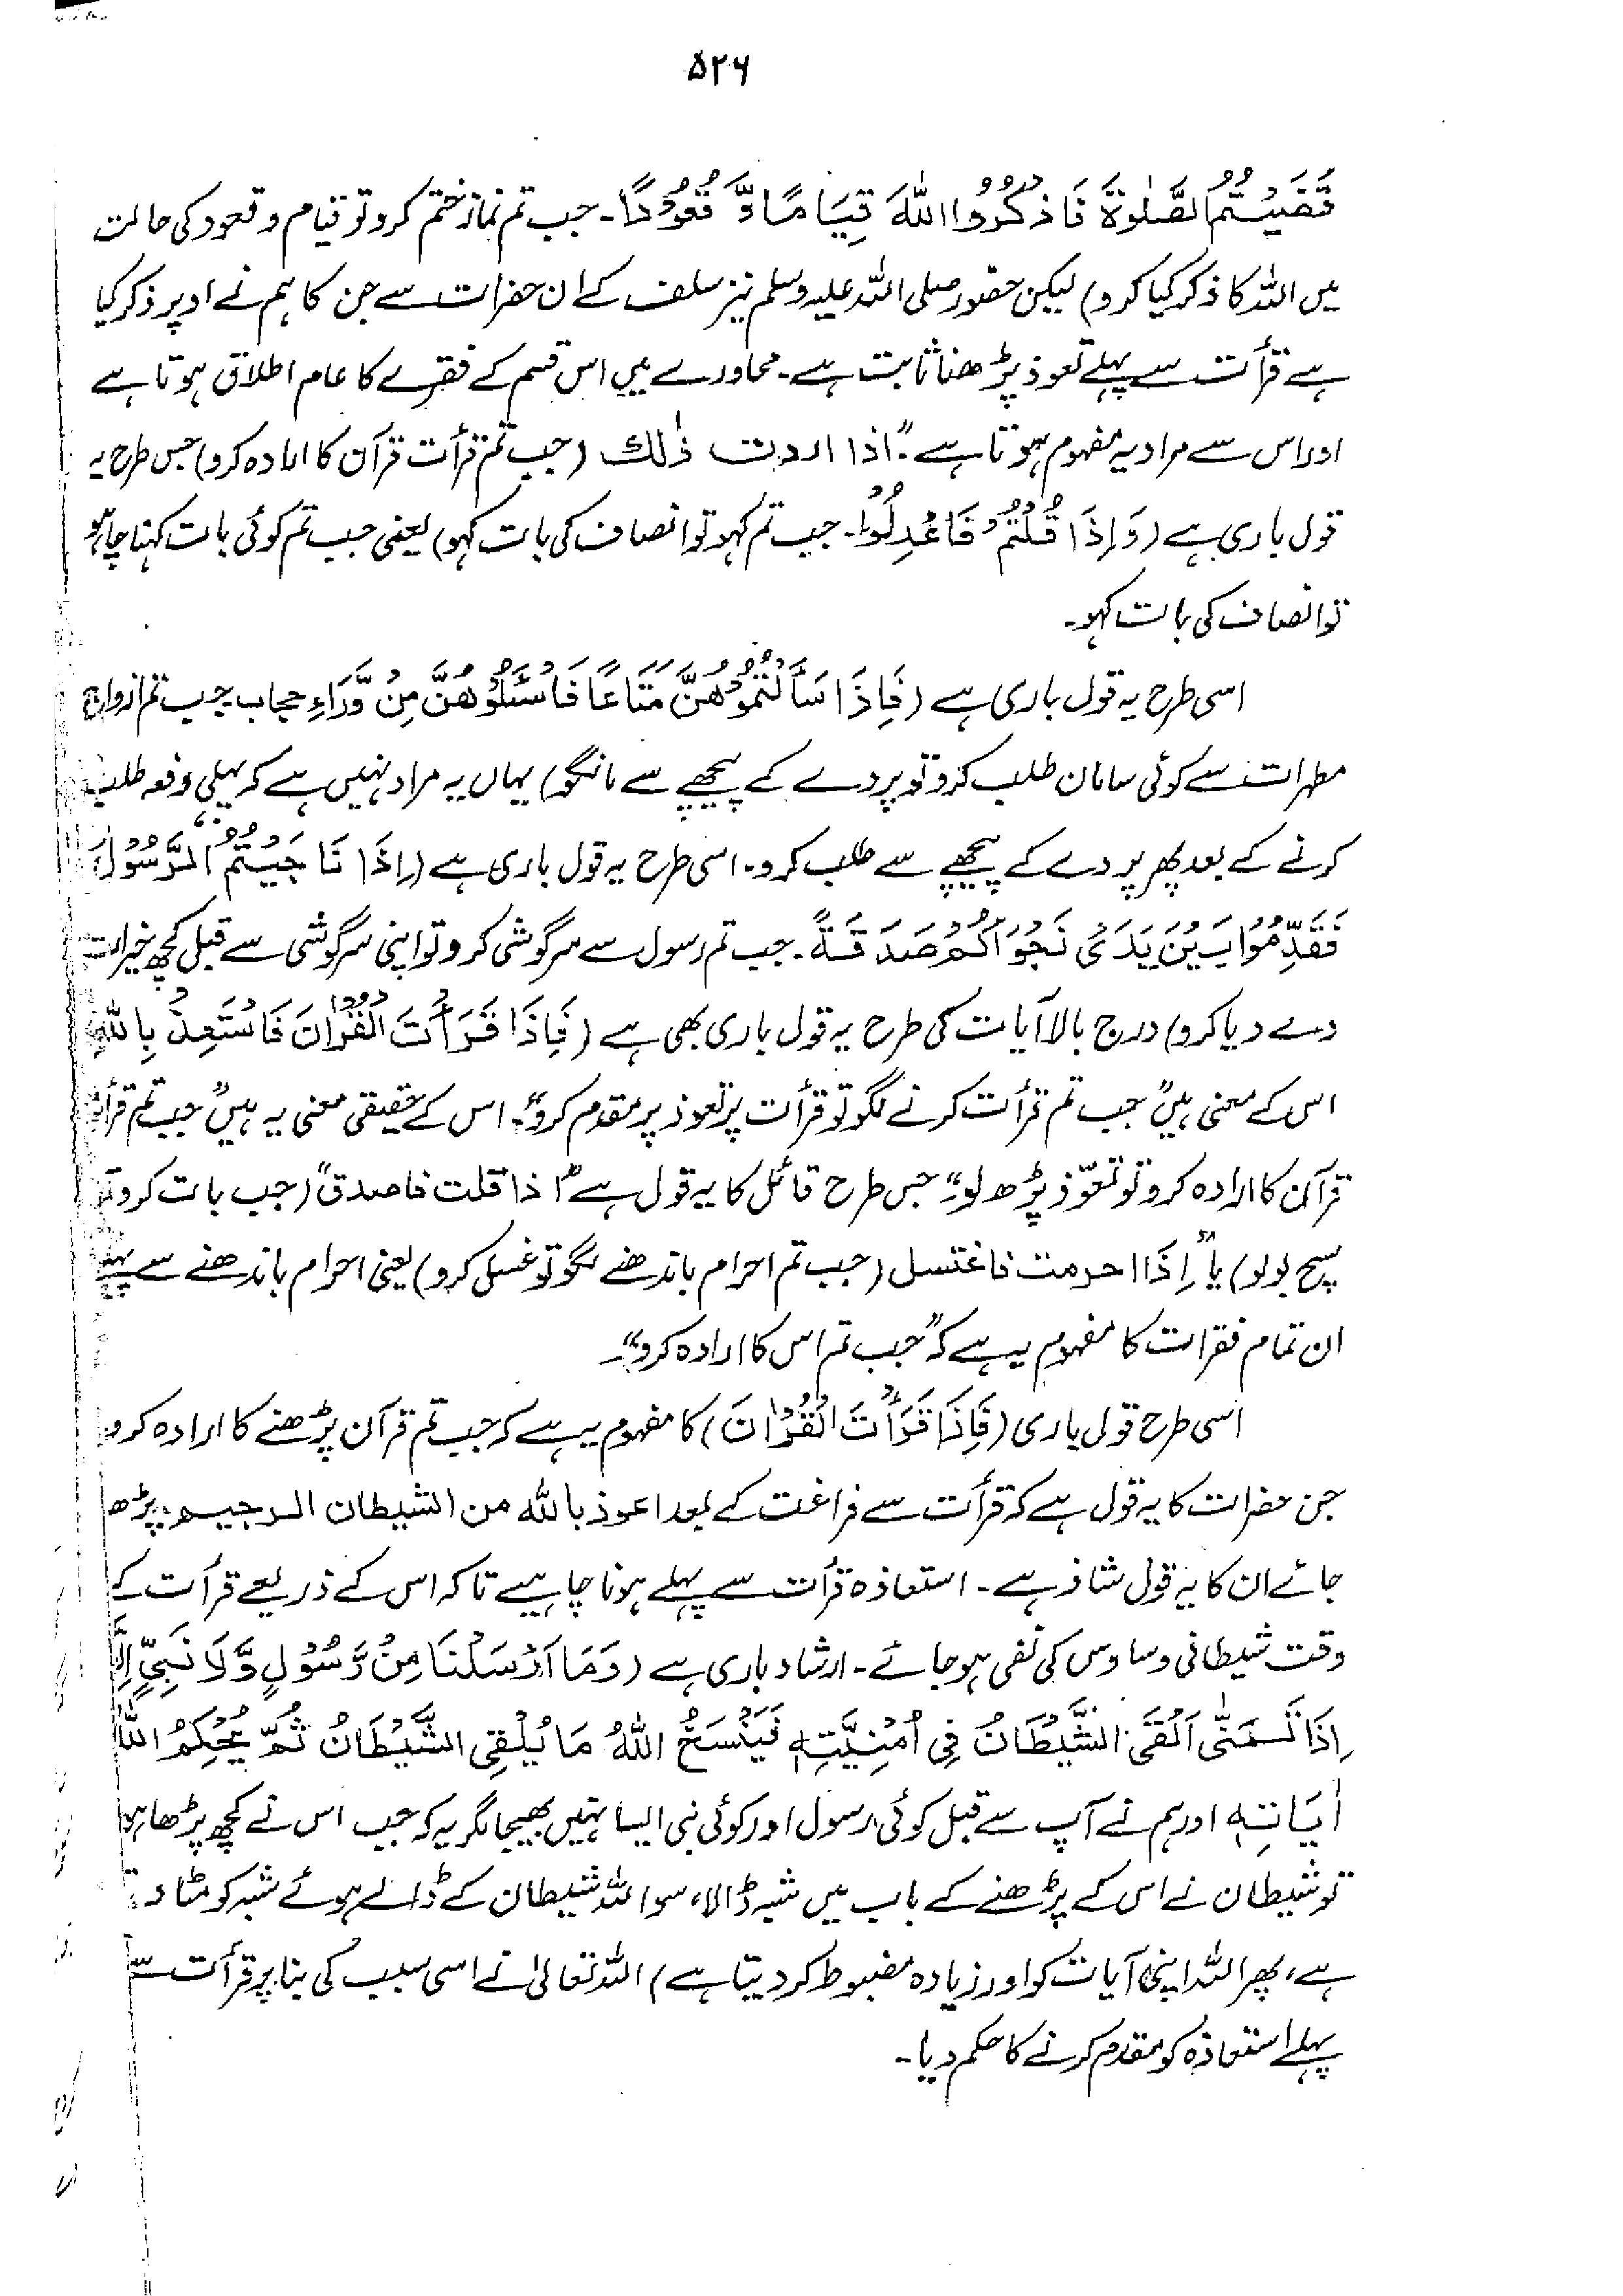 ۵۲۶
قَضَيْتُمُ الصَّلٰوةَ فَاذْكُرُوا اللّٰهَ قِيَامًا وَّ قُعُوْدًا۔ جب تم نماز ختم کرو تو قیام و قعود کی حالت
میں اللہ کا ذکر کیا کرو) لیکن حضور صلی اللہ علیہ وسلم نیز سلف کے ان حضرات سے جن کا ہم نے اوپر ذکر کیا
ہے قرأت سے پہلے تعوذ پڑھنا ثابت ہے۔ محاورے میں اس قسم کے فقرے کا عام اطلاق ہوتا ہے
اور اس سے مراد یہ مفہوم ہوتا ہے۔ "اذا اردت ذٰلك (جب تم قرأت قرآن کا ارادہ کرو) جس طرح یہ
قول باری ہے (وَاِذَا قُلْتُمْ فَاعْدِلُوْا۔ جب تم کہو تو انصاف کی بات کہو) یعنی جب تم کوئی بات کہنا چاہو
تو انصاف کی بات کہو۔
اسی طرح یہ قول باری ہے (فَاِذَا سَأَلْتُمُوْهُنَّ مَتَاعًا فَاسْئَلُوْهُنَّ مِنْ وَّرَاءِ حجاب۔ جب تم ازواج
مطہرات سے کوئی سامان طلب کرو تو پردے کے پیچھے سے مانگو) یہاں یہ مراد نہیں ہے کہ پہلی دفعہ طلب
کرنے کے بعد پھر پردے کے پیچھے سے طلب کرو۔ اسی طرح یہ قول باری ہے (اِذَا نَاجَيْتُمُ الرَّسُوْلَ
فَقَدِّمُوْا بَيْنَ يَدَىْ نَجْوَاكُمْ صَدَقَةً۔ جب تم رسول سے سرگوشی کرو تو اپنی سرگوشی سے قبل کچھ خیرات
دے دیا کرو) درج بالا آیات کی طرح یہ قول باری بھی ہے (فَاِذَا قَرَأْتَ الْقُرْاٰنَ فَاسْتَعِذْ بِاللّٰهِ
اس کے معنی ہیں "جب تم قرأت کرنے لگو تو قرأت پر تعوذ پر مقدم کرو"۔ اس کے حقیقی معنی یہ ہیں "جب تم قرأت
قرآن کا ارادہ کرو تو تعوّذ پڑھ لو"۔ جس طرح قائل کا یہ قول ہے "اذا قلت فاصدق" (جب بات کرو تو
سچ بولو) یا "اِذَا احرمت فاغتسل (جب تم احرام باندھنے لگو تو غسل کرو) یعنی احرام باندھنے سے پہلے
ان تمام فقرات کا مفہوم یہ ہے کہ "جب تم اس کا ارادہ کرو"۔
اسی طرح قول باری (فَاِذَا قَرَأْتَ الْقُرْاٰنَ) کا مفہوم یہ ہے کہ جب تم قرآن پڑھنے کا ارادہ کرو
جن حضرات کا یہ قول ہے کہ قرأت سے فراغت کے بعد اعوذ باللّٰه من الشيطان الرجيم، پڑھ
جائے ان کا یہ قول شاذ ہے۔ استعاذہ قرأت سے پہلے ہونا چاہیے تاکہ اس کے ذریعے قرأت کے
وقت شیطانی وساوس کی نفی ہو جائے۔ ارشاد باری ہے (وَمَا اَرْسَلْنَا مِنْ رَّسُوْلٍ وَّلَا نَبِيٍّ اِلَّا
اِذَا تَمَنّٰى اَلْقَى الشَّيْطَانُ فِى اُمْنِيَّتِهٖ فَيَنْسَخُ اللّٰهُ مَا يُلْقِى الشَّيْطَانُ ثُمَّ يُحْكِمُ اللّٰهُ
اٰيَاتِهٖ اور ہم نے آپ سے قبل کوئی رسول اور کوئی نبی ایسا نہیں بھیجا مگر یہ کہ جب اس نے کچھ پڑھا ہو
تو شیطان نے اس کے پڑھنے کے باب میں شبہ ڈالا، سو اللہ شیطان کے ڈالے ہوئے شبہ کو مٹا
ہے، پھر اللہ اپنی آیات کو اور زیادہ مضبوط کر دیتا ہے) اللہ تعالیٰ نے اسی سبب کی بنا پر قرأت سے
پہلے استعاذہ کو مقدم کرنے کا حکم دیا۔